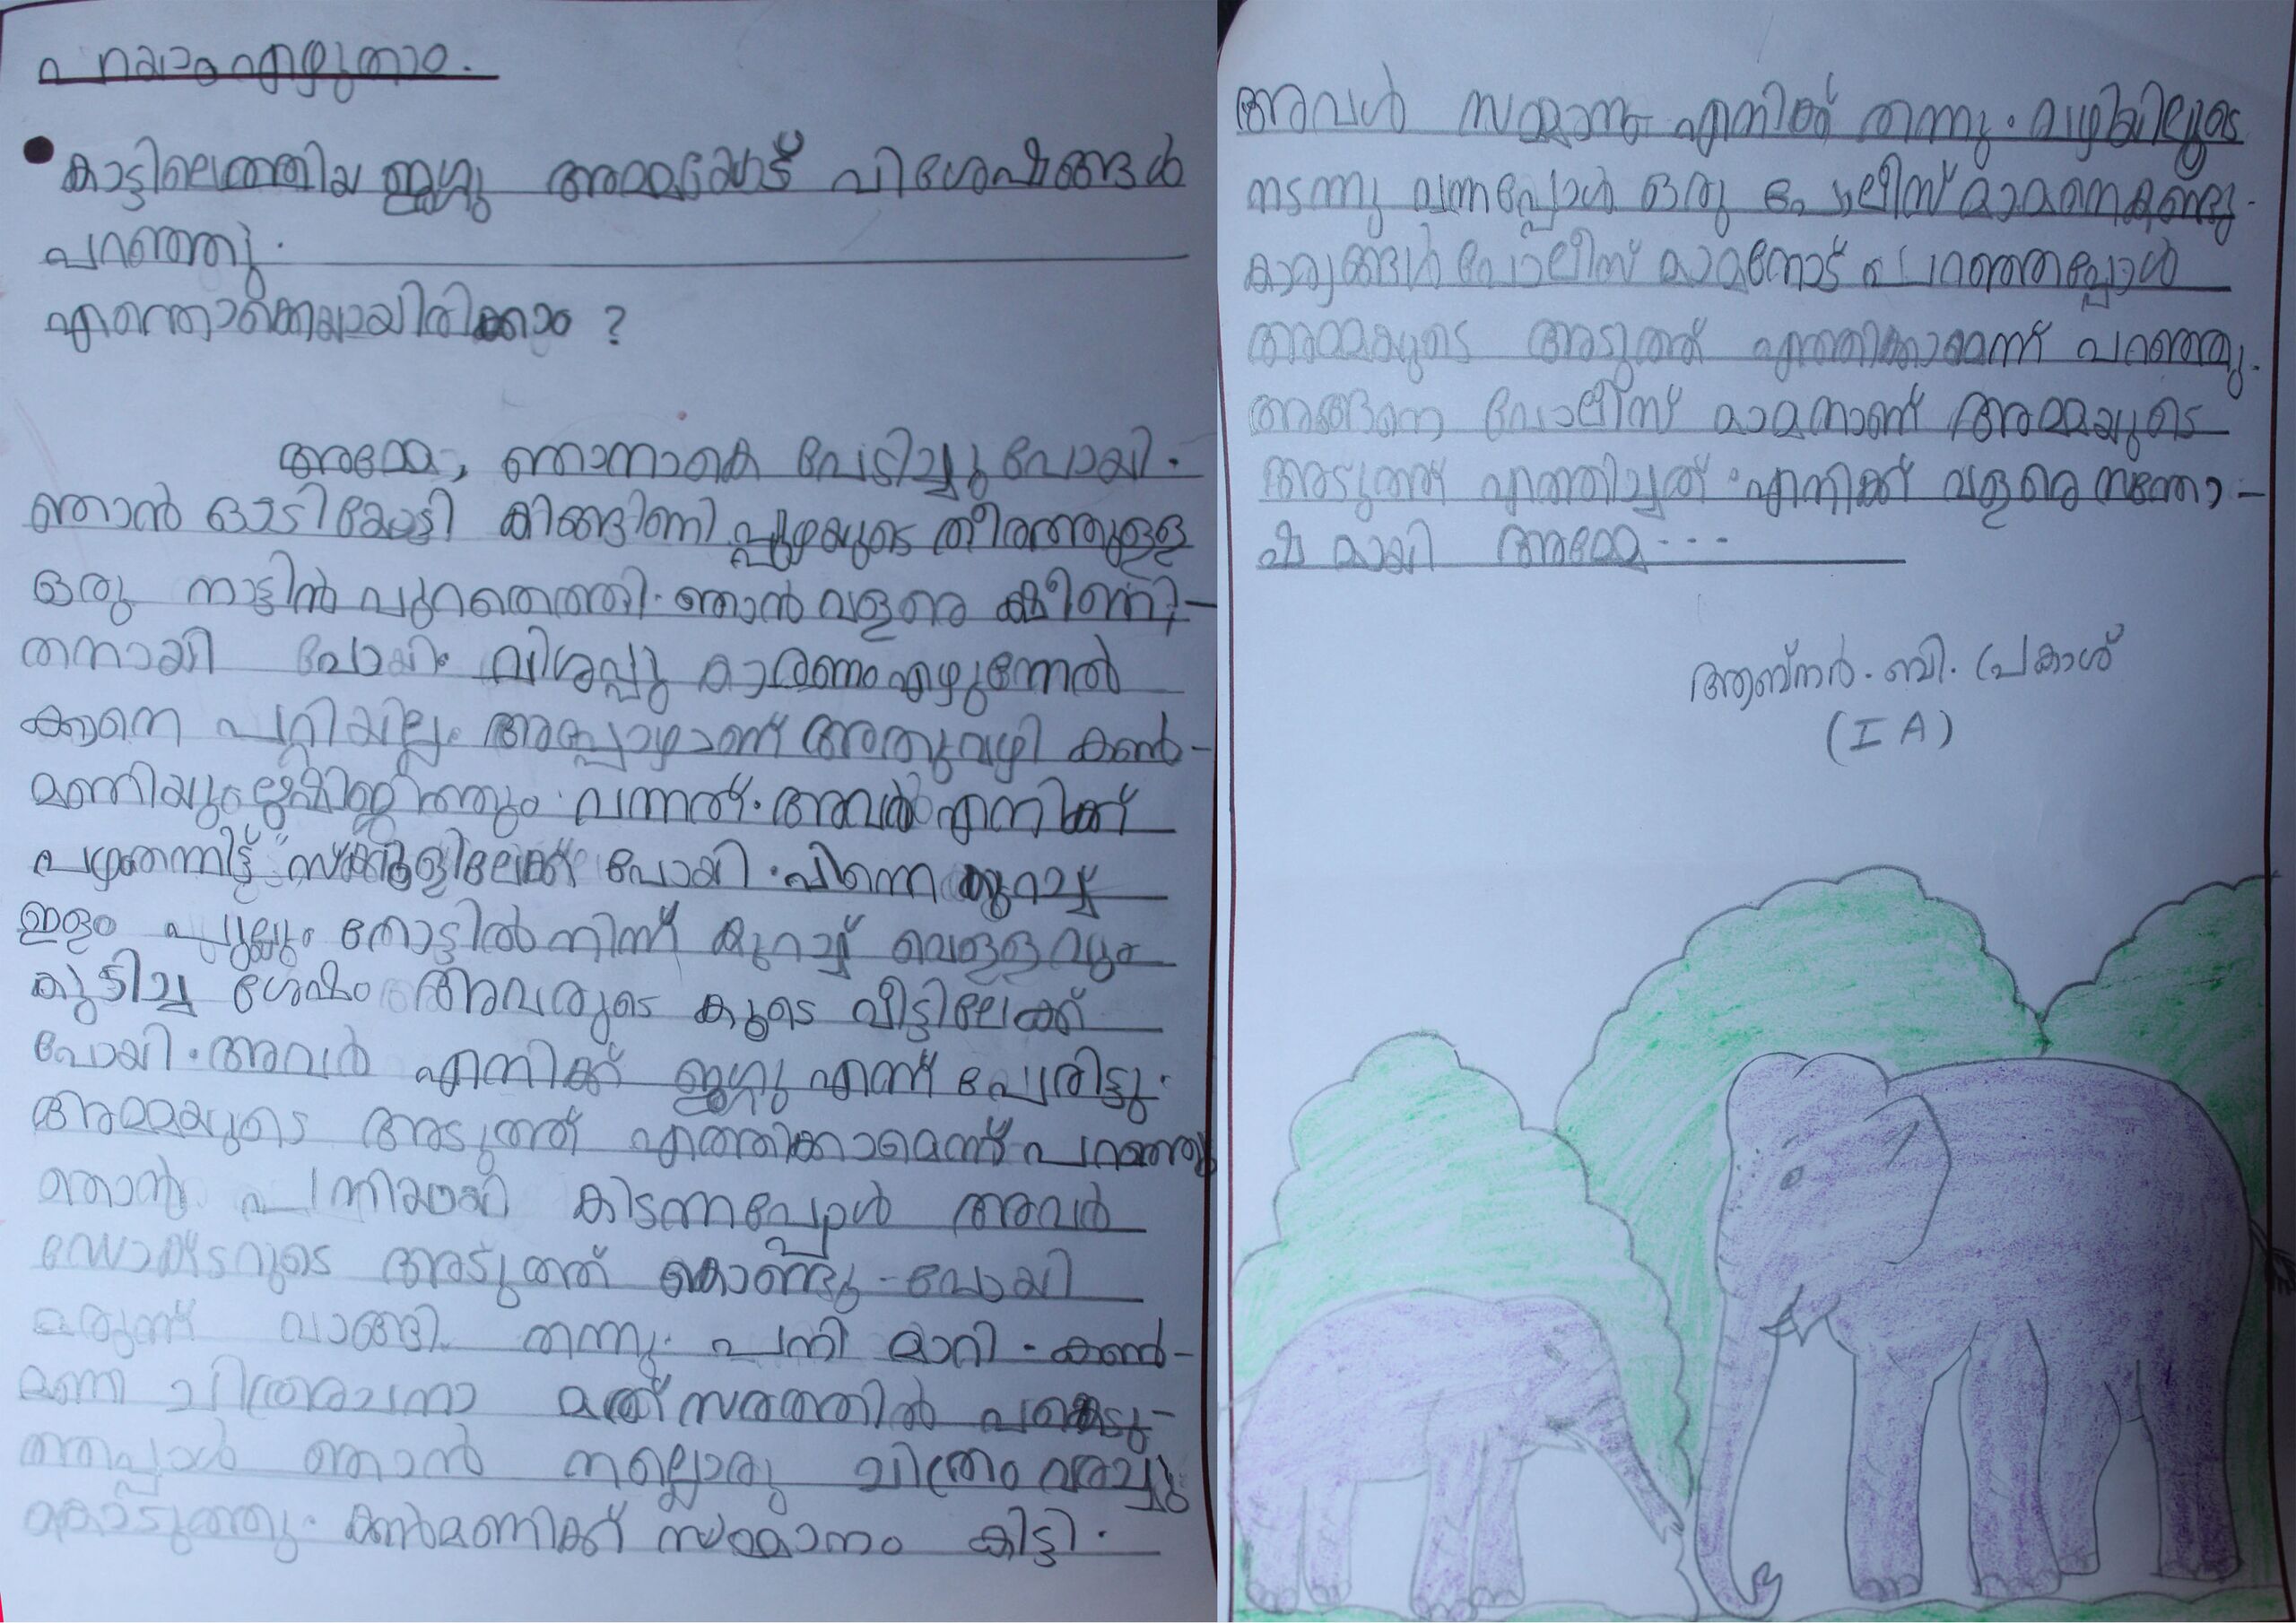 കാട്ടിലെത്തിയ ജഗ്ഗു അമ്മയോട് വിശേഷങ്ങൾ
പറഞ്ഞു.
എന്തൊക്കെയായിരിക്കാം ?
അമ്മേ, ഞാനാകെ പേടിച്ചു പോയി.
ഞാൻ ഓടിയോടി കിങ്ങിണി പ്പുഴയുടെ തീരത്തുള്ള
ഒരു നാട്ടിൻ പുറത്തെത്തി. ഞാൻ വളരെ ക്ഷീണി-
തനായി പോയി. വിശപ്പു കാരണം എഴുന്നേൽ
ക്കാനെ പറ്റിയില്ല. അപ്പോഴാണ് അതുവഴി കൺ-
മണിയും വന്നത്. അവർ എനിക്ക്
പഴംതന്നിട്ട് സ്കൂളിലേക്ക് പോയി. പിന്നെ കുറാച്ച്
ഇളം പുല്ലും തോട്ടിൽനിന്ന് കുറാച്ച് വെള്ളവും
കുടിച്ച ശേഷം അവരുടെ കൂടെ വീട്ടിലേക്ക്
പോയി. അവർ എനിക്ക് ജഗ്ഗു എന്ന് പേരിട്ടു.
അമ്മയുടെ അടുത്ത് എത്തിക്കാമെന്ന് പറഞ്ഞു
ഞാൻ പനിയായി കിടന്നപ്പോൾ അവർ
ഡോക്ടറുടെ അടുത്ത് കൊണ്ടു പോയി
മരുന്ന് വാങ്ങി തന്നു. പനി മാറി. കൺ-
മണി ചിത്രരചനാ മത്സരത്തിൽ പങ്കെടു-
ത്തപ്പോൾ ഞാൻ നല്ലൊരു ചിത്രം വരച്ചു
കൊടുത്തു. കൺമണിക്ക് സമ്മാനം കിട്ടി.
അവൾ സമ്മാനം എനിക്ക് തന്നു. വഴിയിലൂടെ
നടന്നു വന്നപ്പോൾ ഒരു പോലീസ് മാമനെകണ്ടു.
കാര്യങ്ങൾ പോലീസ് മാമനോട് പറഞ്ഞപ്പോൾ
അമ്മയുടെ അടുത്ത് എത്തിക്കാമെന്ന് പറഞ്ഞു.
അങ്ങനെ പോലീസ് മാമനാണ് അമ്മയുടെ
അടുത്ത് എത്തിച്ചത്. എനിക്ക് വളരെ സന്തോ-
ഷമായി അമ്മേ...
ആബ്നർ. ബി. പ്രകാശ്
(I A)